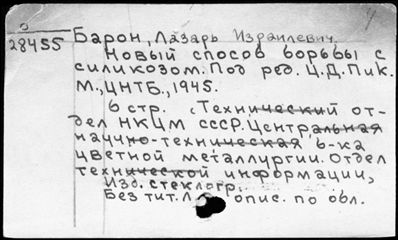 28455
Барон, Лазарь Израилевич.
Новый способ борьбы с
силикозом. Под ред. Ц.Д.Пик.
М., ЦНТБ, 1945.
6 стр. (Технический от-
дел НКЦМ СССР. Центральная
научно-техническая б-ка
цветной металлургии. Отдел
технической информации,
Изд. стеклогр.
Без тит. л. опис. по обл.